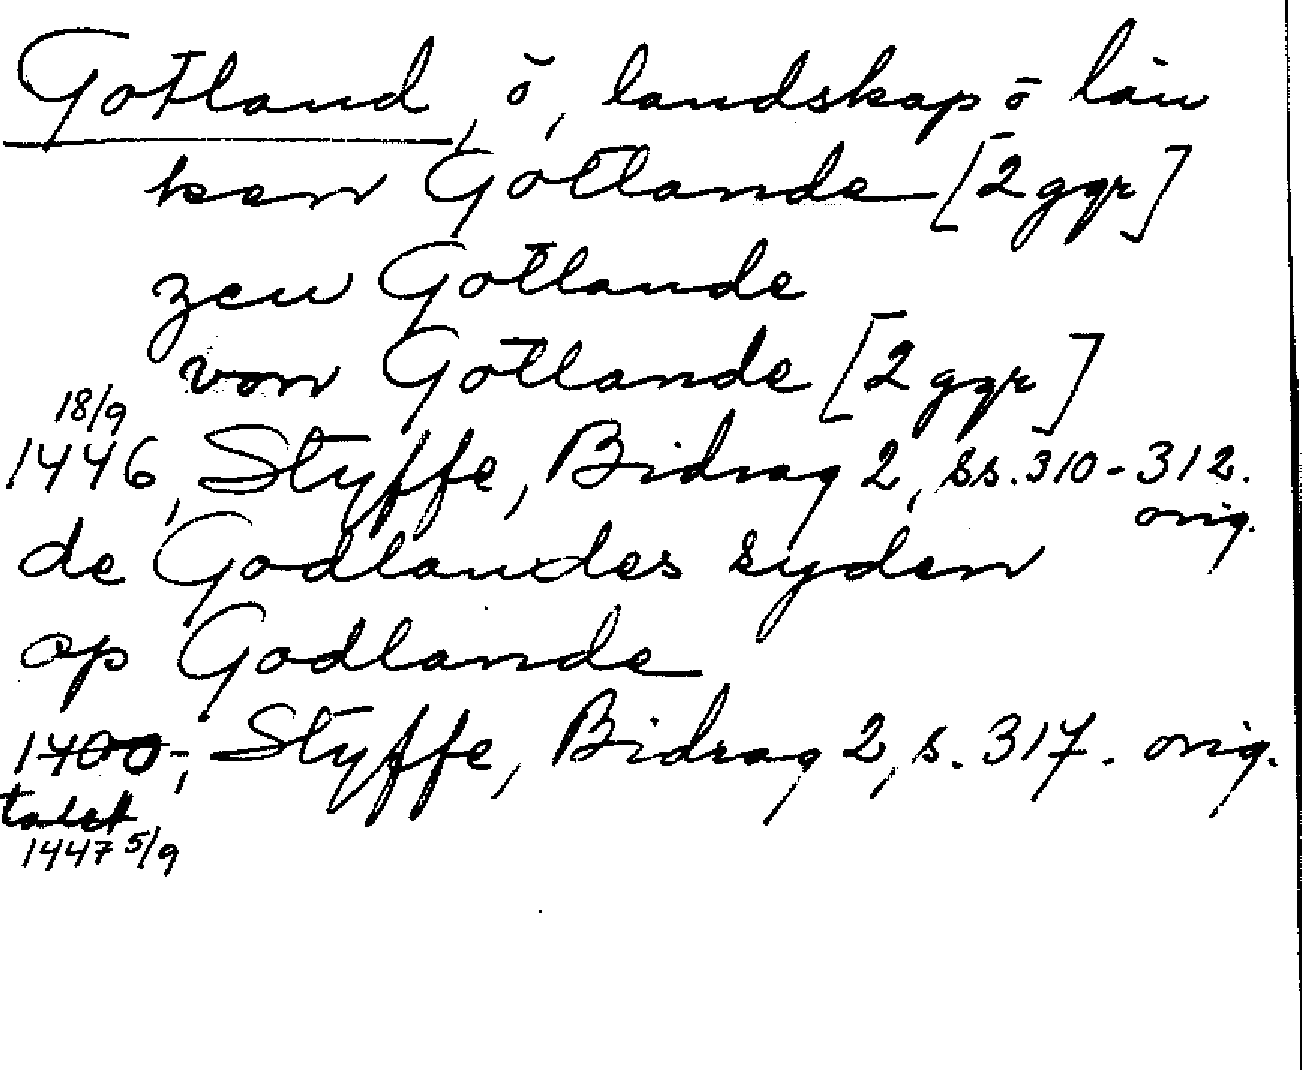 Gotland, ö, landskap o län
ken Gotlande [2 ggr]
zen Gotlande
von Gotlande [2 ggr]
18/9
1446, Styffe, Bidrag 2, ss. 310-312.
orig.
de Godlandes syden
op Godlande
1400-, Styffe, Bidrag 2, s. 317. orig.
talet
1447 5/9